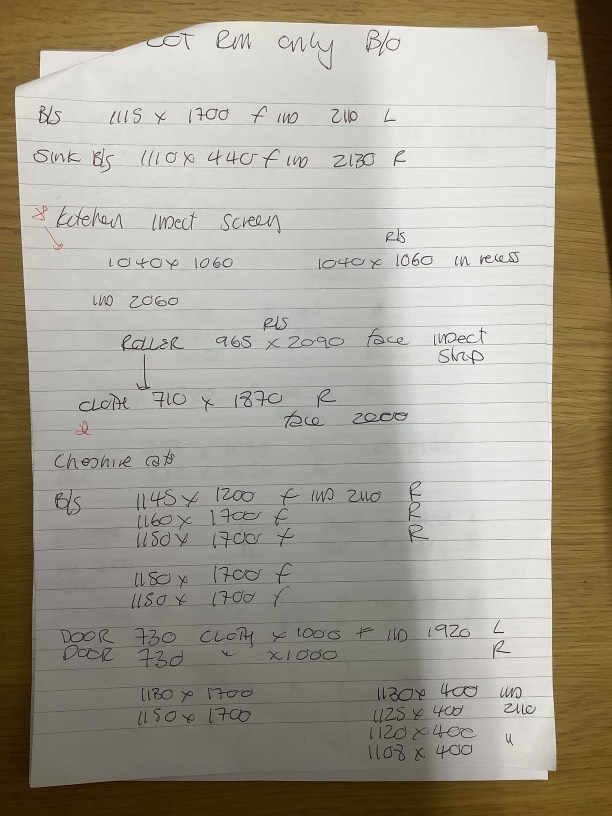 COT RM only B/O
B/s 1115 x 1700 f IND 2110 L
Sink B/s 1110 x 440 f IND 2130 R
* kitchen insect screen
R/s
1040 x 1060 1040 x 1060 in recess
IND 2060
R/s
ROLLER 965 x 2090 face insect
strip
CLOTH 710 x 1870 R
face 2000
Cheshire cats
B/s 1145 x 1200 f IND 2110 R
1160 x 1700 f R
1150 x 1700 f R
1150 x 1700 f
1150 x 1700 f
DOOR 730 CLOTH x 1000 f IND 1920 L
DOOR 730 " x 1000 R
1130 x 1700 1130 x 400 IND
1150 x 1700 1125 x 400 2110
1120 x 400
1108 x 400 "